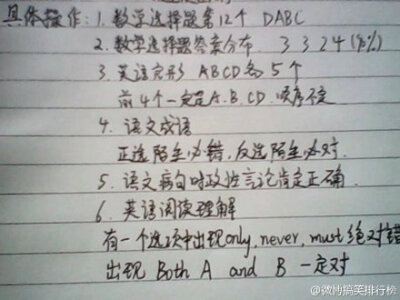 具体操作：1. 数学选择题第12个 DABC
2. 数学选择题答案分布. 3 3 2 4 (90%)
3. 英语完形 ABCD各5个
前4个一定是A.B.CD.顺序不定
4. 语文成语
正选陌生必错，反选陌生必对.
5. 语文病句时政性言论肯定正确.
6. 英语阅读理解
有一个选项中出现only, never, must绝对错
出现 Both A and B 一定对
@微博搞笑排行榜